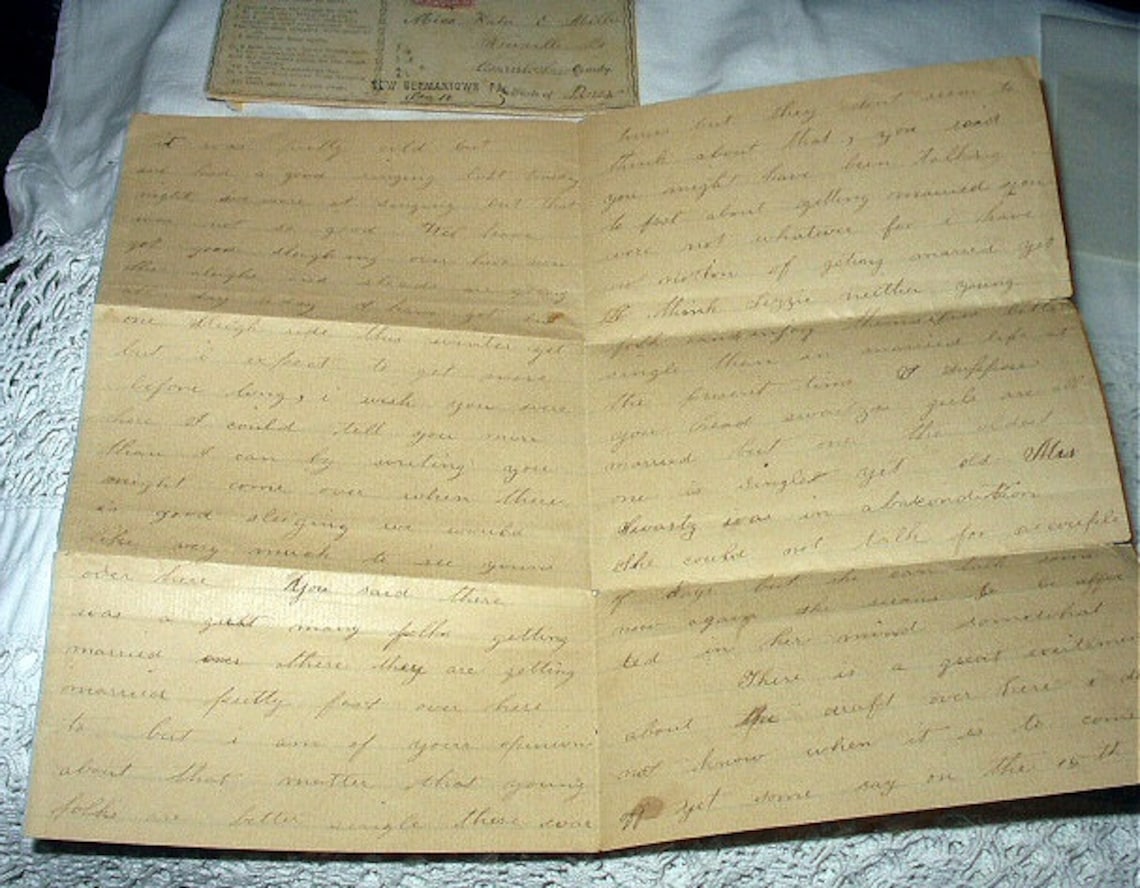 Miss Kate E Mille
Newville Po
County
NEW GERMANTOWN PA
State of Penna
it was pretty cold but
we had a good singing last
night we were at singing but that
was not so good We have
got good sleighing over here now
the sleighs and sleads are going
day today I have got but
one sleigh ride this winter yet
but i expect to get more
before long, i wish you were
here I could tell you more
than I can by writing you
might come over when there
is good sleiging we would
like very much to see yours
over here You said there
was a great many folks getting
married over there they are getting
married pretty fast over here
to but i am of your opinion
about that matter that young
folks are better single these war
times but they dont seem to
think about that, you said
you might have been talking
to fast about getting married you
were not whatever for i have
no notion of geting married yet
I think Lizzie neither young
folk can enjoy themselves better
single than in married life at
the present time I suppose
you head swartzys girls are all
married but one the oldest
one is single yet old Mrs
Swartz was in a bad condition
She could not talk for a couple
of days but she can talk some
now again she seems to be affec
ted in her mind somewhat
There is a great excitement
about the draft over here i do
not know when it is to come
off yet some say on the 15 th